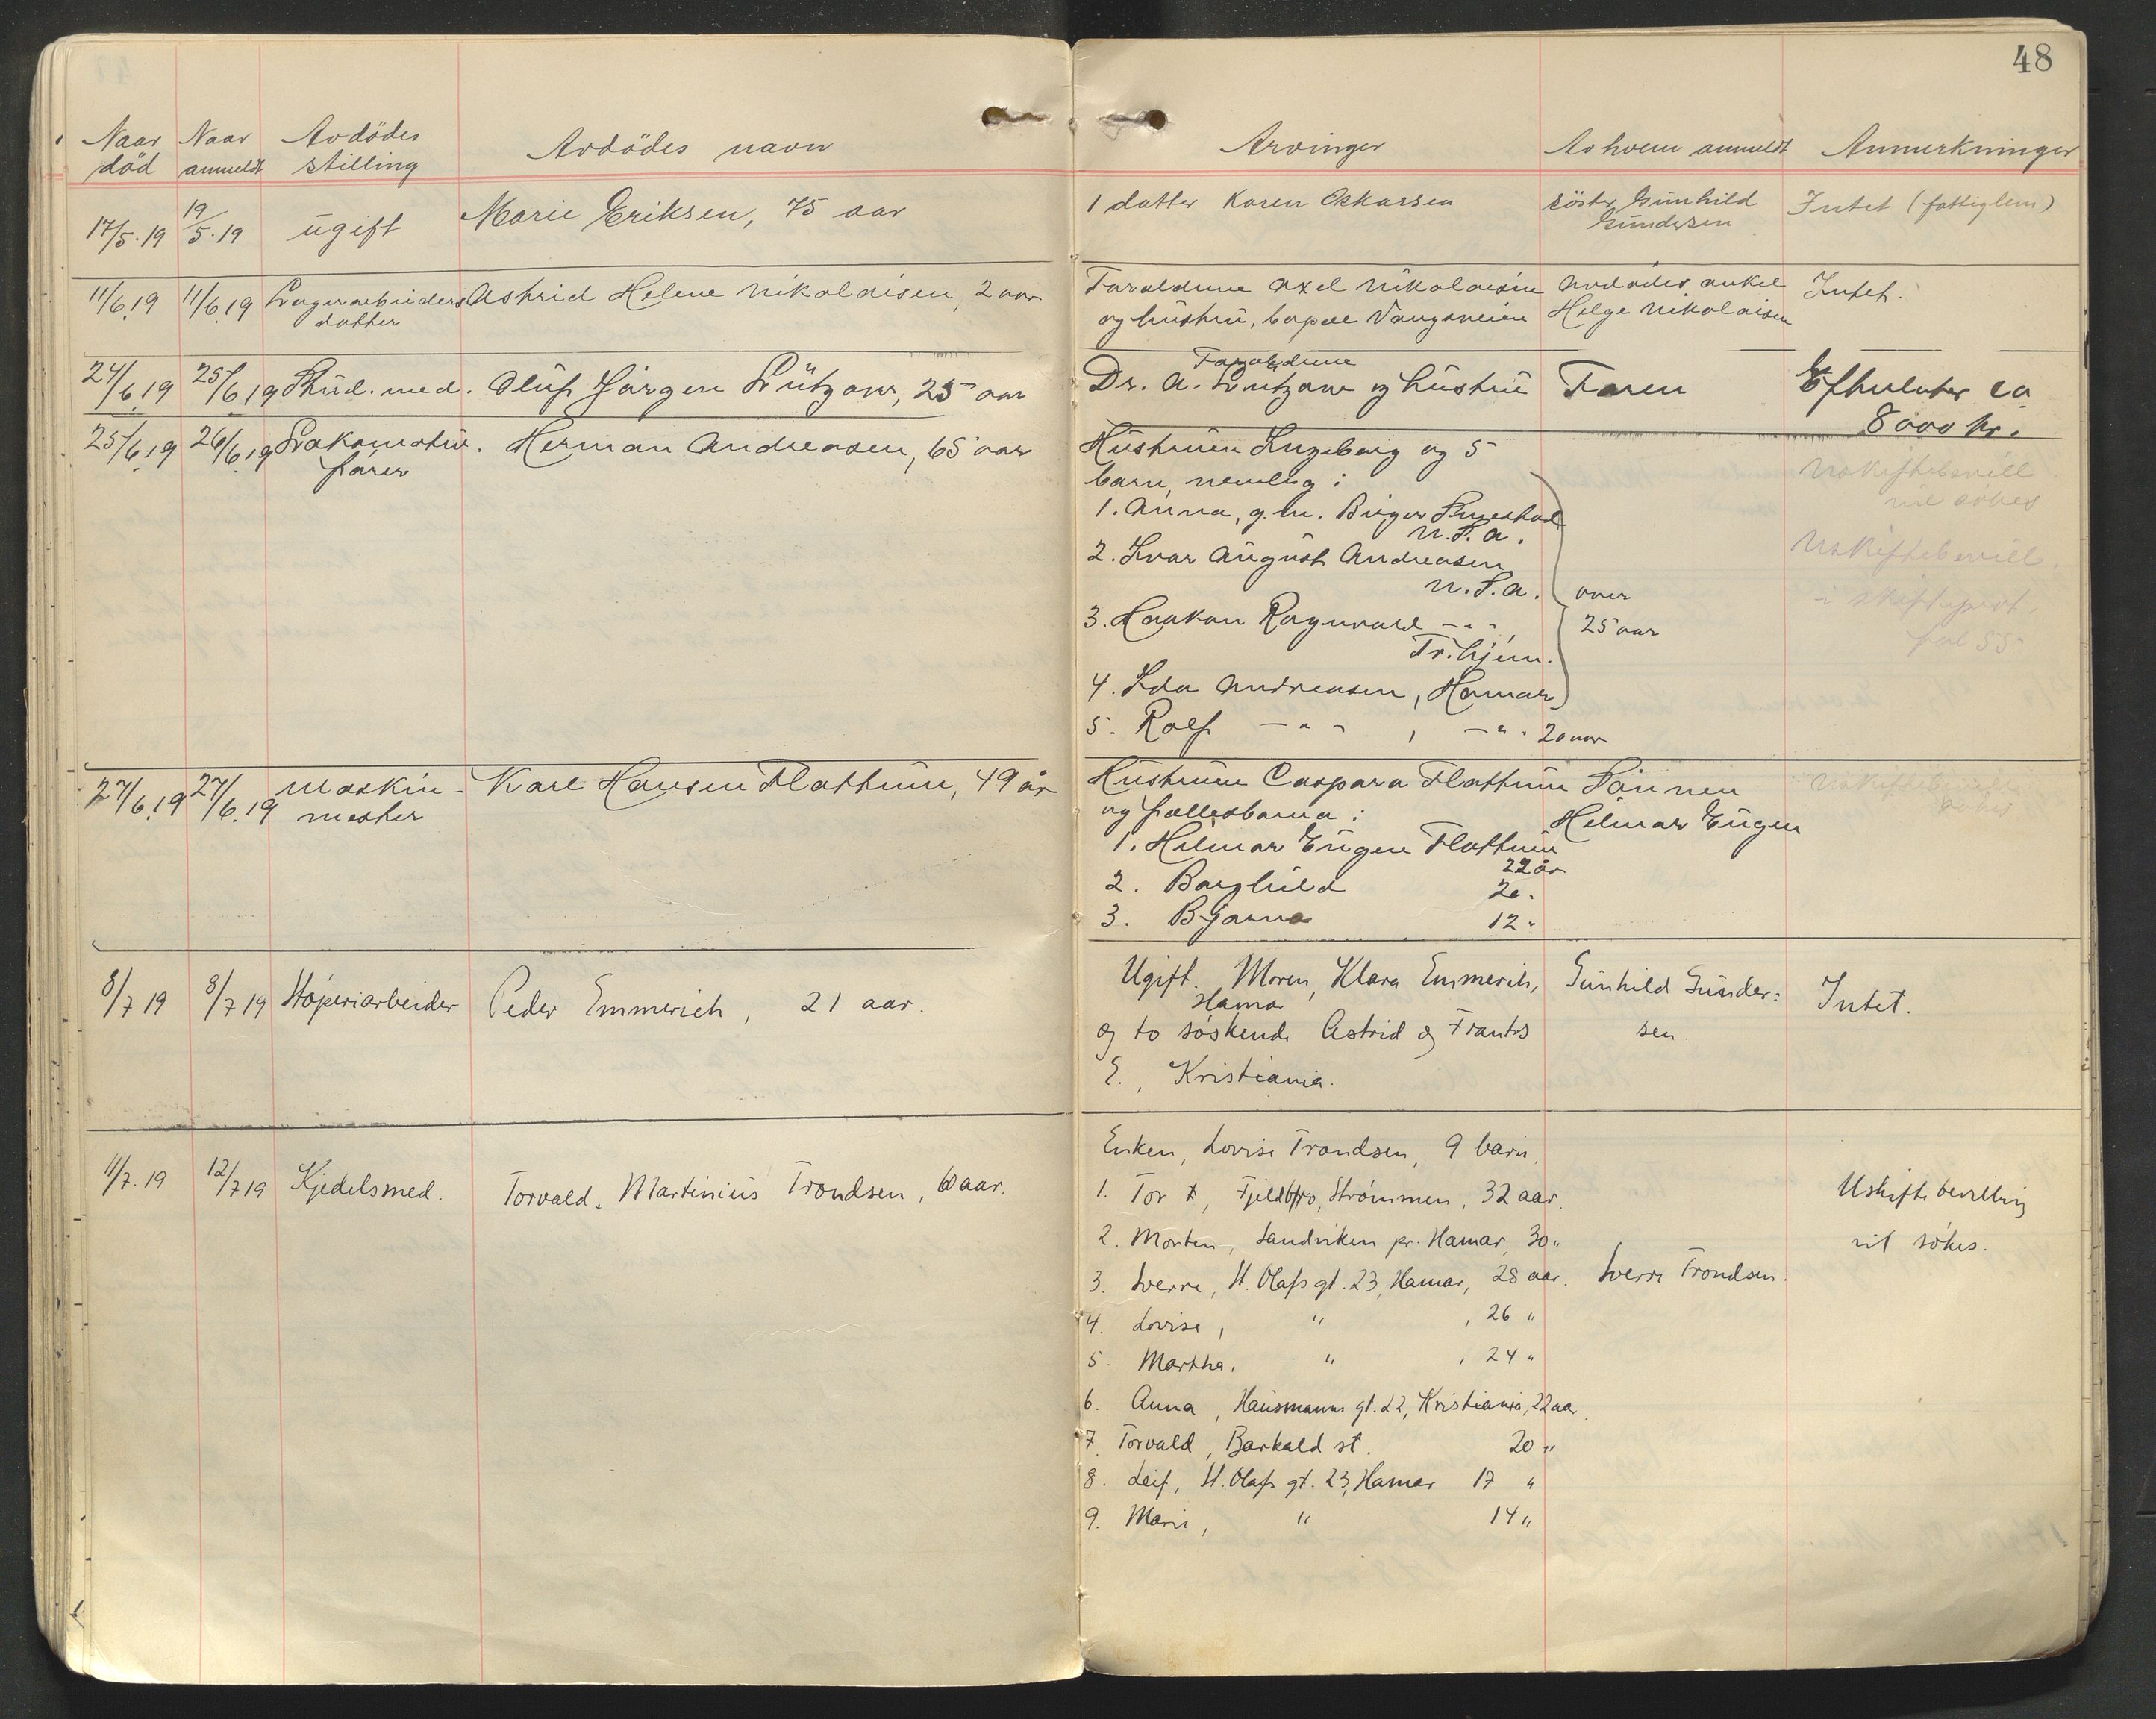 48
Naar død
Naar anmeldt
Avdödes stilling
Avdödes navn
Arvinger
Av hvem anmeldt
Anmerkninger
17/5.19 19/5.19 ugift Marie Eriksen, 75 aar
1 datter Karen Oskarsen
söster Gunhild
Gundersen
Intet (fattiglem)
11/6.19 11/6.19 Lagerarbeiders Astrid Helene Nikolaisen, 2 aar
datter
Forældrene Axel Nikolaisen
og hustru, Vangsveien
Avdødes onkel
Helge Nikolaisen
Intet.
24/6.19 25/6.19 Stud. med. Oluf Jörgen Lützow, 25 aar
Forældrene
Dr. A. Lützow og hustru
Faren
Efterlater ca
8000 kr.
25/6.19 26/6.19 Lokomotiv. Herman Andreasen, 65 aar
fører
Hustruen Ingeborg og 5
barn, nemlig:
1. Anna, g.m. Birger
U.S.A.
2. Ivar August Andreasen
U.S.A.
3. Haakon Ragnvald — " —,
Tr.hjem.
4. Ida Andreasen, Hamar
5. Rolf — " — , — " — 20 aar
over
25 aar
Uskiftebevill.
vil søkes
Uskiftebevill.
i skifteprot.
fol 55
27/6.19 27/6.19 Maskin- Karl Hansen Flattum, 49 år
mester
Hustruen Caspara Flattum
og fællesbarna:
1. Hilmar Eugen Flattum
22 år
2. Borghild 20 "
3. Bjarne 12 "
Sønnen
Hilmar Eugen
8/7 19 8/7 19 Støperiarbeider Peder Emmerich, 21 aar.
Ugift. Moren, Klara Emmerich,
Hamar
og to søskende Astrid og Frants
E., Kristiania.
Gunhild Gunder=
sen.
Intet.
11/7.19 12/7 19 Kjedelsmed. Torvald. Martinius Trondsen, 60 aar.
Enken, Lovise Trondsen, 9 barn,
1. Tor, Fjeldbo, Strømmen, 32 aar.
2. Morten, Sandviken pr. Hamar, 30 "
3. Sverre, St. Olafs gt. 23, Hamar, 28 aar.
4. Lovise, " , 26 "
5. Martha, " , 24 "
6. Anna, Hausmanns gt. 22, Kristiania, 22 aar.
7. Torvald, Barkald st. 20 "
8. Leif, St. Olafs gt. 23, Hamar 17 "
9. Marie, " 14 "
Sverre Trondsen.
Uskiftebevilling
vil søkes.